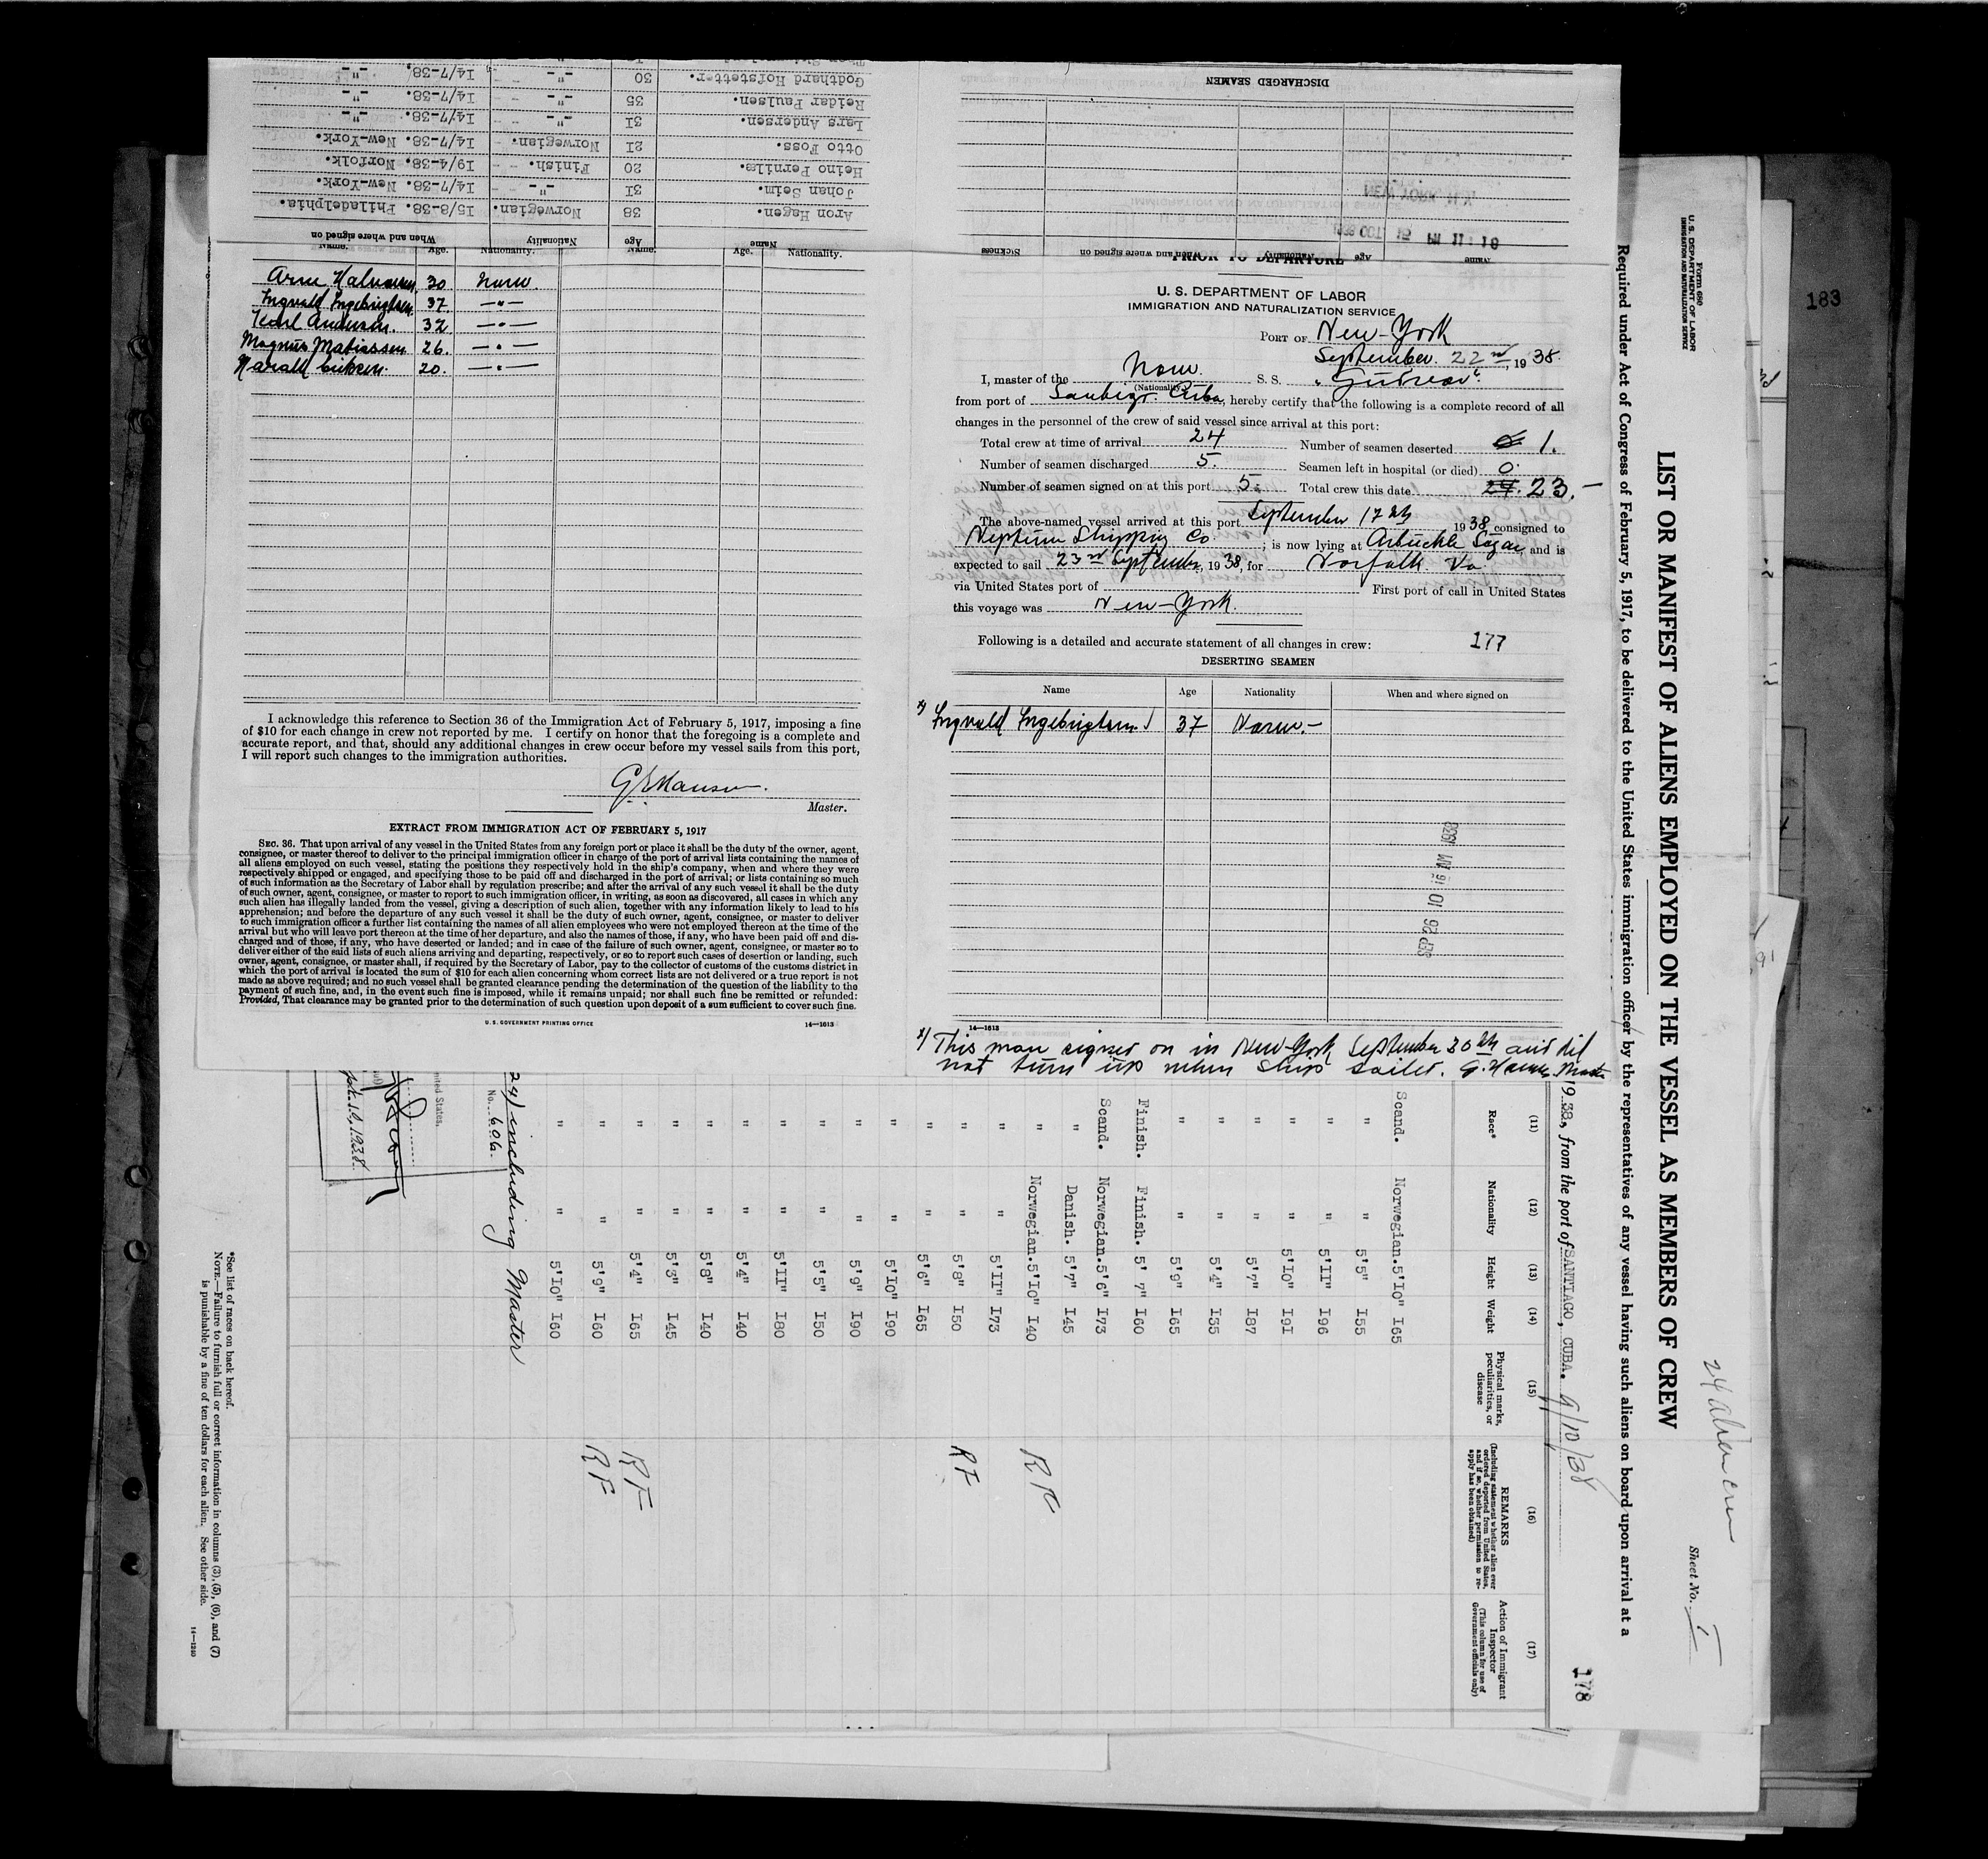 When and where signed on Nationality Age Name
15/8-38. Philadelphia. Norwegian. 38 Aron Hagen.
14/7-38. New-York. -"- 31 Johan Seim.
19/4-38. Norfolk. Finish. 20 Heino Pernila.
14/7-38. New-York. Norwegian. 21 Otto Foss.
14/7-38. -"- -"- 31 Lars Andersen.
14/7-38. -"- -"- 35 Reidar Paulsen.
14/7-38. -"- -"- 30 Godthard Hofstetter.
Name. Age. Nationality. Name. Age. Nationality.
Arne Halvorsen 30 Norw.
Ingvald Ingebrigtsen 37. -"-
Karl Andersen. 32 -"-
Magnus Matiassen 26. -"-
Harald Eriksen. 20. -"-
I acknowledge this reference to Section 36 of the Immigration Act of February 5, 1917, imposing a fine
of $10 for each change in crew not reported by me. I certify on honor that the foregoing is a complete and
accurate report, and that, should any additional changes in crew occur before my vessel sails from this port,
I will report such changes to the immigration authorities.
Master.
EXTRACT FROM IMMIGRATION ACT OF FEBRUARY 5, 1917
SEC. 36. That upon arrival of any vessel in the United States from any foreign port or place it shall be the duty of the owner, agent,
consignee, or master thereof to deliver to the principal immigration officer in charge of the port of arrival lists containing the names of
all aliens employed on such vessel, stating the positions they respectively hold in the ship's company, when and where they were
respectively shipped or engaged, and specifying those to be paid off and discharged in the port of arrival; or lists containing so much
of such information as the Secretary of Labor shall by regulation prescribe; and after the arrival of any such vessel it shall be the duty
of such owner, agent, consignee, or master to report to such immigration officer, in writing, as soon as discovered, all cases in which any
such alien has illegally landed from the vessel, giving a description of such alien, together with any information likely to lead to his
apprehension; and before the departure of any such vessel it shall be the duty of such owner, agent, consignee, or master to deliver
to such immigration officer a further list containing the names of all alien employees who were not employed thereon at the time of the
arrival but who will leave port thereon at the time of her departure, and also the names of those, if any, who have been paid off and dis-
charged and of those, if any, who have deserted or landed; and in case of the failure of such owner, agent, consignee, or master so to
deliver either of the said lists of such aliens arriving and departing, respectively, or so to report such cases of desertion or landing, such
owner, agent, consignee, or master shall, if required by the Secretary of Labor, pay to the collector of customs of the customs district in
which the port of arrival is located the sum of $10 for each alien concerning whom correct lists are not delivered or a true report is not
made as above required; and no such vessel shall be granted clearance pending the determination of the question of the liability to the
payment of such fine, and, in the event such fine is imposed, while it remains unpaid; nor shall such fine be remitted or refunded:
Provided, That clearance may be granted prior to the determination of such question upon deposit of a sum sufficient to cover such fine.
U. S. GOVERNMENT PRINTING OFFICE 14—1613
DISCHARGED SEAMEN
1938 OCT 15 PM 11:18
NEW YORK N.Y.
Sickness When and where signed on Nationality Age Name
PRIOR TO DEPARTURE
U. S. DEPARTMENT OF LABOR
IMMIGRATION AND NATURALIZATION SERVICE
PORT OF New-York
September. 22nd, 1938.
I, master of the Norw. S. S. "Gudvear".
(Nationality)
from port of Santiago Cuba, hereby certify that the following is a complete record of all
changes in the personnel of the crew of said vessel since arrival at this port:
Total crew at time of arrival 24 Number of seamen deserted 1.
Number of seamen discharged 5. Seamen left in hospital (or died) 0.
Number of seamen signed on at this port 5. Total crew this date 24. 23.-
The above-named vessel arrived at this port September 17th 1938 consigned to
Neptun Shipping Co; is now lying at Arbuckle Sugar, and is
expected to sail 23rd September, 1938, for Norfolk Va
via United States port of First port of call in United States
this voyage was New-York.
Following is a detailed and accurate statement of all changes in crew: 177
DESERTING SEAMEN
Name Age Nationality When and where signed on
x) Ingvald Ingebrigtsen 37 Norw.-
SEP 26 10 16 AM 1938
14—1613
x) This man signed on in New-York September 20th and did
not turn up when ship sailed. G. Hansen Master
183
Form 680
U. S. DEPARTMENT OF LABOR
IMMIGRATION AND NATURALIZATION SERVICE
24 alien crew
Sheet No. I
LIST OR MANIFEST OF ALIENS EMPLOYED ON THE VESSEL AS MEMBERS OF CREW
Required under Act of Congress of February 5, 1917, to be delivered to the United States immigration officer by the representatives of any vessel having such aliens on board upon arrival at a
1938, from the port of SANTIAGO, CUBA. 9/10/38
178
(11) (12) (13) (14) (15) (16) (17)
Race* Nationality Height Weight Physical marks, peculiarities, or disease
REMARKS
(Including statement whether alien ever ordered deported from United States, and if so, whether permission to re-apply has been obtained)
Action of Immigrant Inspector
(This column for use of Government officials only)
Scand. Norwegian. 5'10" 165
" " 5'5" 155
" " 5'11" 196
" " 5'10" 191
" " 5'7" 187
" " 5'4" 135
" " 5'9" 165
Finish. Finish. 5'7" 160
Scand. Norwegian. 5'6" 173
" Danish. 5'7" 145
" Norwegian. 5'10" 140 RR
" " 5'11" 173
" " 5'8" 150 RF
" " 5'6" 165
" " 5'10" 190
" " 5'9" 190
" " 5'5" 150
" " 5'11" 180
" " 5'4" 140
" " 5'8" 140
" " 5'3" 145
" " 5'4" 165 RF
" " 5'9" 160 RF
" " 5'10" 160
24) including Master
No. 606.
nited States,
1938.
*See list of races on back hereof.
NOTE.—Failure to furnish full or correct information in columns (3), (5), (6), and (7)
is punishable by a fine of ten dollars for each alien. See other side.
14—1240